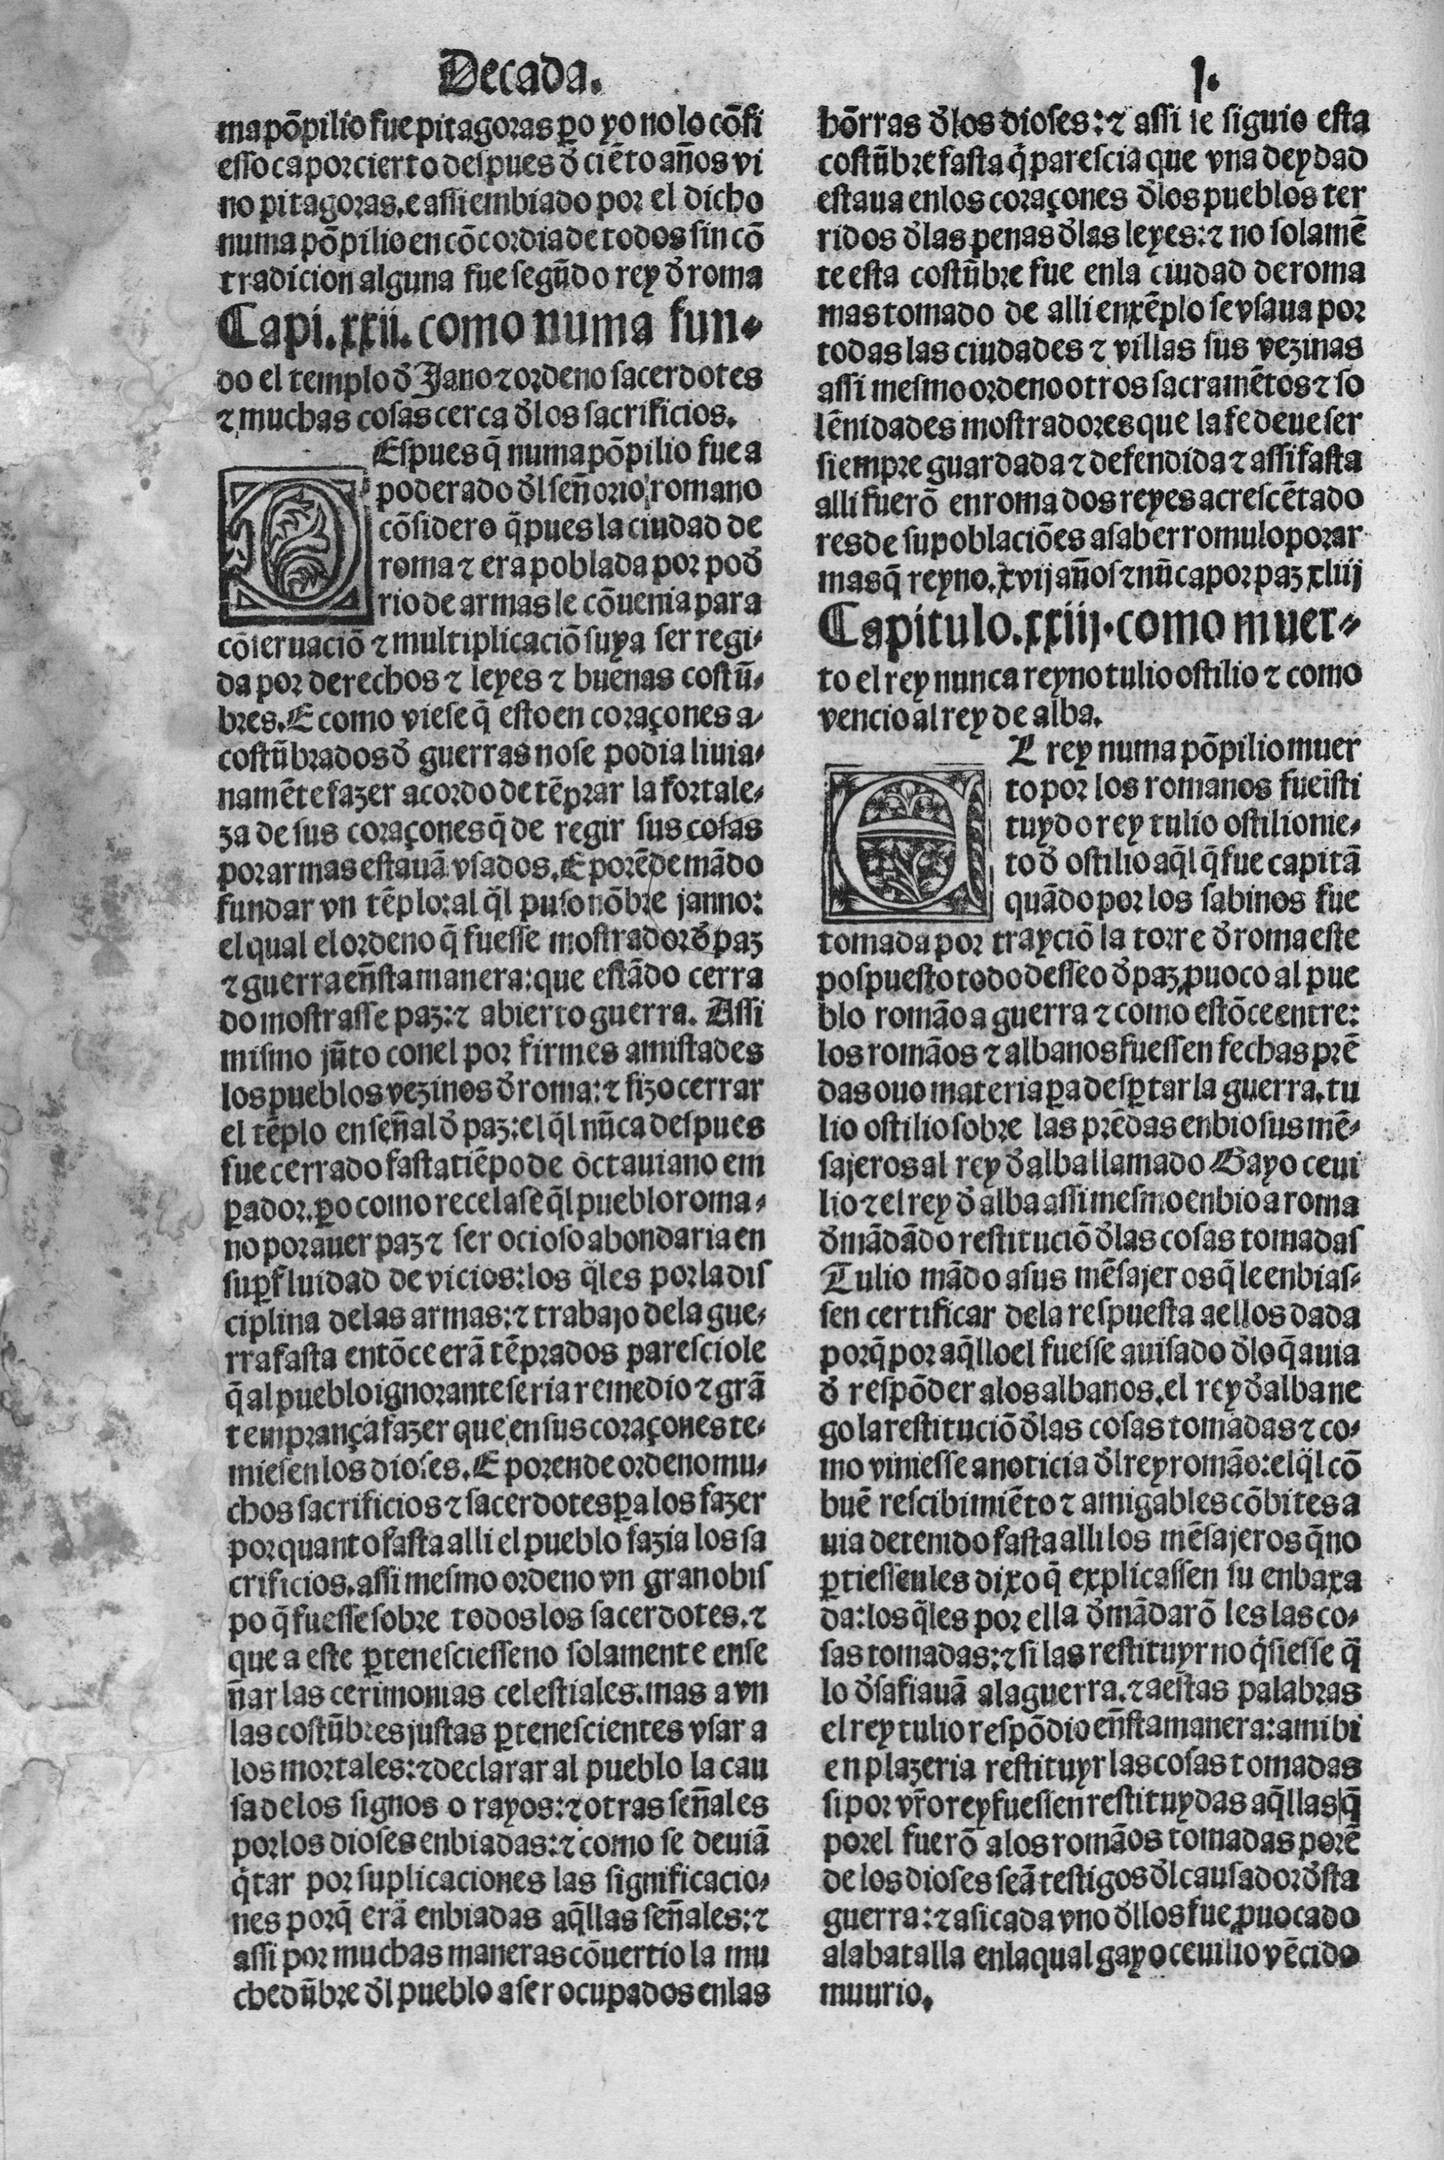 Decada.
I.
ma põpilio fue pitagoras ꝑo yo no lo cõfi
esso ca por cierto despues đ ciẽto años vi
no pitagoras. e assi embiado por el dicho
numa põpilio en cõcordia de todos sin cõ
tradicion alguna fue segũdo rey đ roma
Capi. xxii. como numa fun-
do el templo đ Jano ⁊ ordeno sacerdotes
⁊ muchas cosas cerca đlos sacrificios.
DEspues q̃ numa põpilio fue a
poderado đl señorio romano
cõsidero q̃ pues la ciudad de
roma ⁊ era poblada por pođ
rio de armas le cõuenia para
cõseruaciõ ⁊ multiplicaciõ suya ser regi-
da por derechos ⁊ leyes ⁊ buenas costũ-
bres. E como viese q̃ esto en coraçones a-
costũbrados đ guerras no se podia liuia-
namẽte fazer acordo de tẽprar la fortale-
za de sus coraçones q̃ de regir sus cosas
por armas estauã vsados. E porẽde mãdo
fundar vn tẽplo: al q̃l puso nõbre janno:
el qual el ordeno q̃ fuesse mostrador đ paz
⁊ guerra eñsta manera: que estãdo cerra
do mostrasse paz: ⁊ abierto guerra. Assi
mismo jũto con el por firmes amistades
los pueblos vezinos đ roma: ⁊ fizo cerrar
el tẽplo en señal đ paz: el q̃l nũca despues
fue cerrado fasta tiẽpo de octauiano em
ꝑador. ꝑo como recelase q̃l pueblo roma-
no por auer paz ⁊ ser ocioso abondaria en
suꝑfluidad de vicios: los q̃les por la dis
ciplina de las armas: ⁊ trabajo dela gue-
rra fasta entõce erã tẽprados paresciole
q̃ al pueblo ignorante seria remedio ⁊ grã
temprança fazer que en sus coraçones te-
miesen los dioses. E porende ordeno mu-
chos sacrificios ⁊ sacerdotes ꝑa los fazer
por quanto fasta alli el pueblo fazia los sa
crificios. assi mesmo ordeno vn gran obis
po q̃ fuesse sobre todos los sacerdotes. ⁊
que a este ꝑtenesciesse no solamente ense
ñar las cerimonias celestiales. mas a vn
las costũbres justas ꝑtenescientes vsar a
los mortales: ⁊ declarar al pueblo la cau
sa delos signos o rayos: ⁊ otras señales
por los dioses enbiadas: ⁊ como se deuiã
q̃tar por suplicaciones las significacio-
nes porq̃ erã enbiadas aq̃llas señales: ⁊
assi por muchas maneras cõuertio la mu
chedũbre đl pueblo a ser ocupados enlas
hõrras đlos dioses: ⁊ assi se siguio esta
costũbre fasta q̃ parescia que vna deydad
estaua enlos coraçones đlos pueblos ter
ridos đlas penas đlas leyes: ⁊ no solamẽ
te esta costũbre fue enla ciudad de roma
mas tomado de alli enxẽplo se vsaua por
todas las ciudades ⁊ villas sus vezinas
assi mesmo ordeno otros sacramẽtos ⁊ so
lẽnidades mostradores que la fe deue ser
siempre guardada ⁊ defendida ⁊ assi fasta
alli fuerõ en roma dos reyes acrescẽtado
res de su poblaciões a saber romulo por ar
mas q̃ reyno. xvij años ⁊ nũca por paz xliij
Capitulo. xxiij. como muer-
to el rey nunca reyno tulio ostilio ⁊ como
vencio al rey de alba.
EL rey numa põpilio muer
to por los romanos fue isti
tuydo rey tulio ostilio nie-
to đ ostilio aq̃l q̃ fue capitã
quãdo por los sabinos fue
tomada por trayciõ la torre đ roma este
pospuesto todo desseo đ paz ꝓuoco al pue
blo romão a guerra ⁊ como estõce entre:
los romãos ⁊ albanos fuessen fechas prẽ
das ouo materia ꝑa desꝑtar la guerra. tu
lio ostilio sobre las prẽdas enbio sus mẽ-
sajeros al rey đ alba llamado Gayo ceui
lio ⁊ el rey đ alba assi mesmo enbio a roma
đmãdãdo restituciõ đlas cosas tomadas
Tulio mãdo a sus mẽsajeros q̃ le enbias-
sen certificar dela respuesta a ellos dada
porq̃ por aq̃llo el fuesse auisado đlo q̃ auia
đ respõder alos albanos. el rey đ alba ne
go la restituciõ đlas cosas tomadas ⁊ co-
mo viniesse a noticia đl rey romão: el q̃l cõ
buẽ rescibimiẽto ⁊ amigables cõbites a
uia detenido fasta alli los mẽsajeros q̃ no
ꝑtiessen les dixo q̃ explicassen su enbaxa
da: los q̃les por ella đmãdarõ les las co-
sas tomadas: ⁊ si las restituyr no q̃siesse q̃
lo đsafiauã ala guerra. ⁊ a estas palabras
el rey tulio respõdio eñsta manera: a mi bi
en plazeria restituyr las cosas tomadas
si por vr̃o rey fuessen restituydas aq̃llas q̃
por el fuerõ alos romãos tomadas porẽ
de los dioses seã testigos đl causador đsta
guerra: ⁊ asi cada vno đllos fue ꝓuocado
ala batalla enla qual gayo ceuilio vẽcido
muurio.